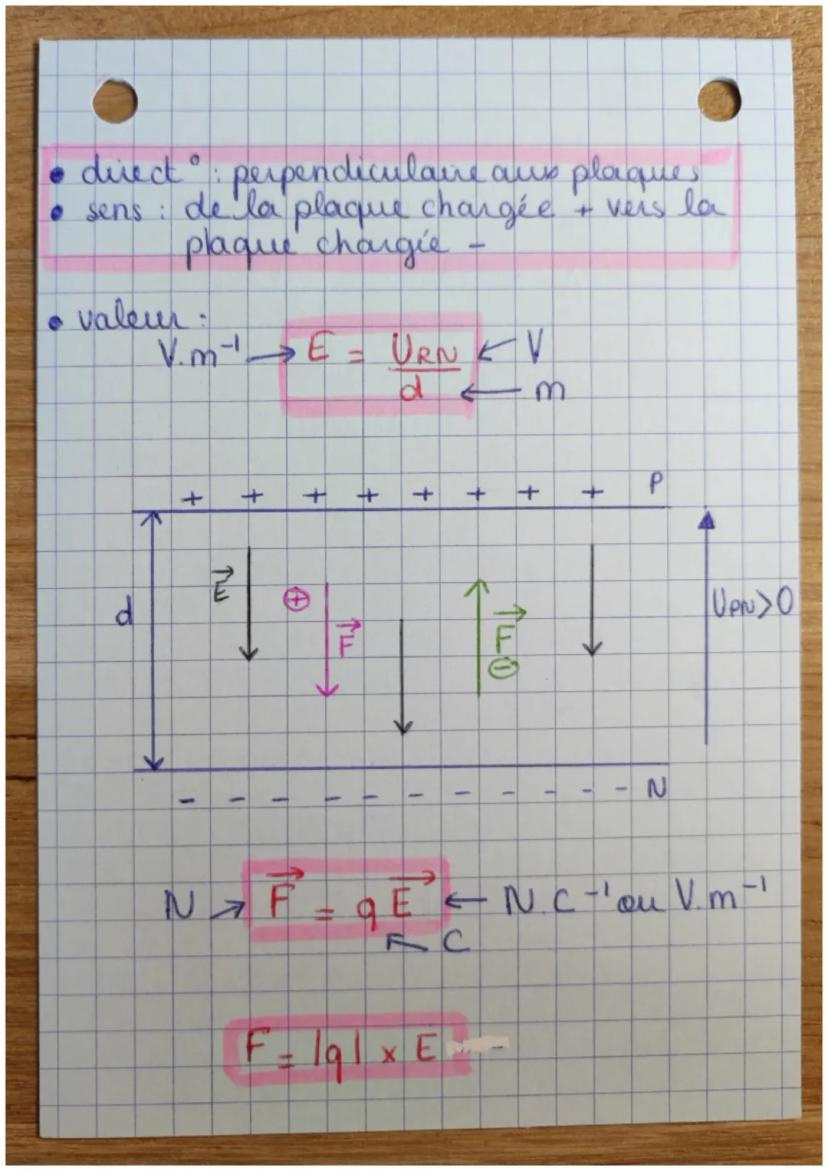 • direct° : perpendiculaire aux plaques
• sens : de la plaque chargée + vers la
plaque chargée -
• valeur :
V.m⁻¹ → E = UPN / d ← V
← m
+ + + + + + + + P
d
E⃗
⊕
F⃗
F⃗
⊖
UPN > 0
- - - - - - - - - - - N
N → F⃗ = q E⃗ ← N.C⁻¹ ou V.m⁻¹
C
F = |q| × E